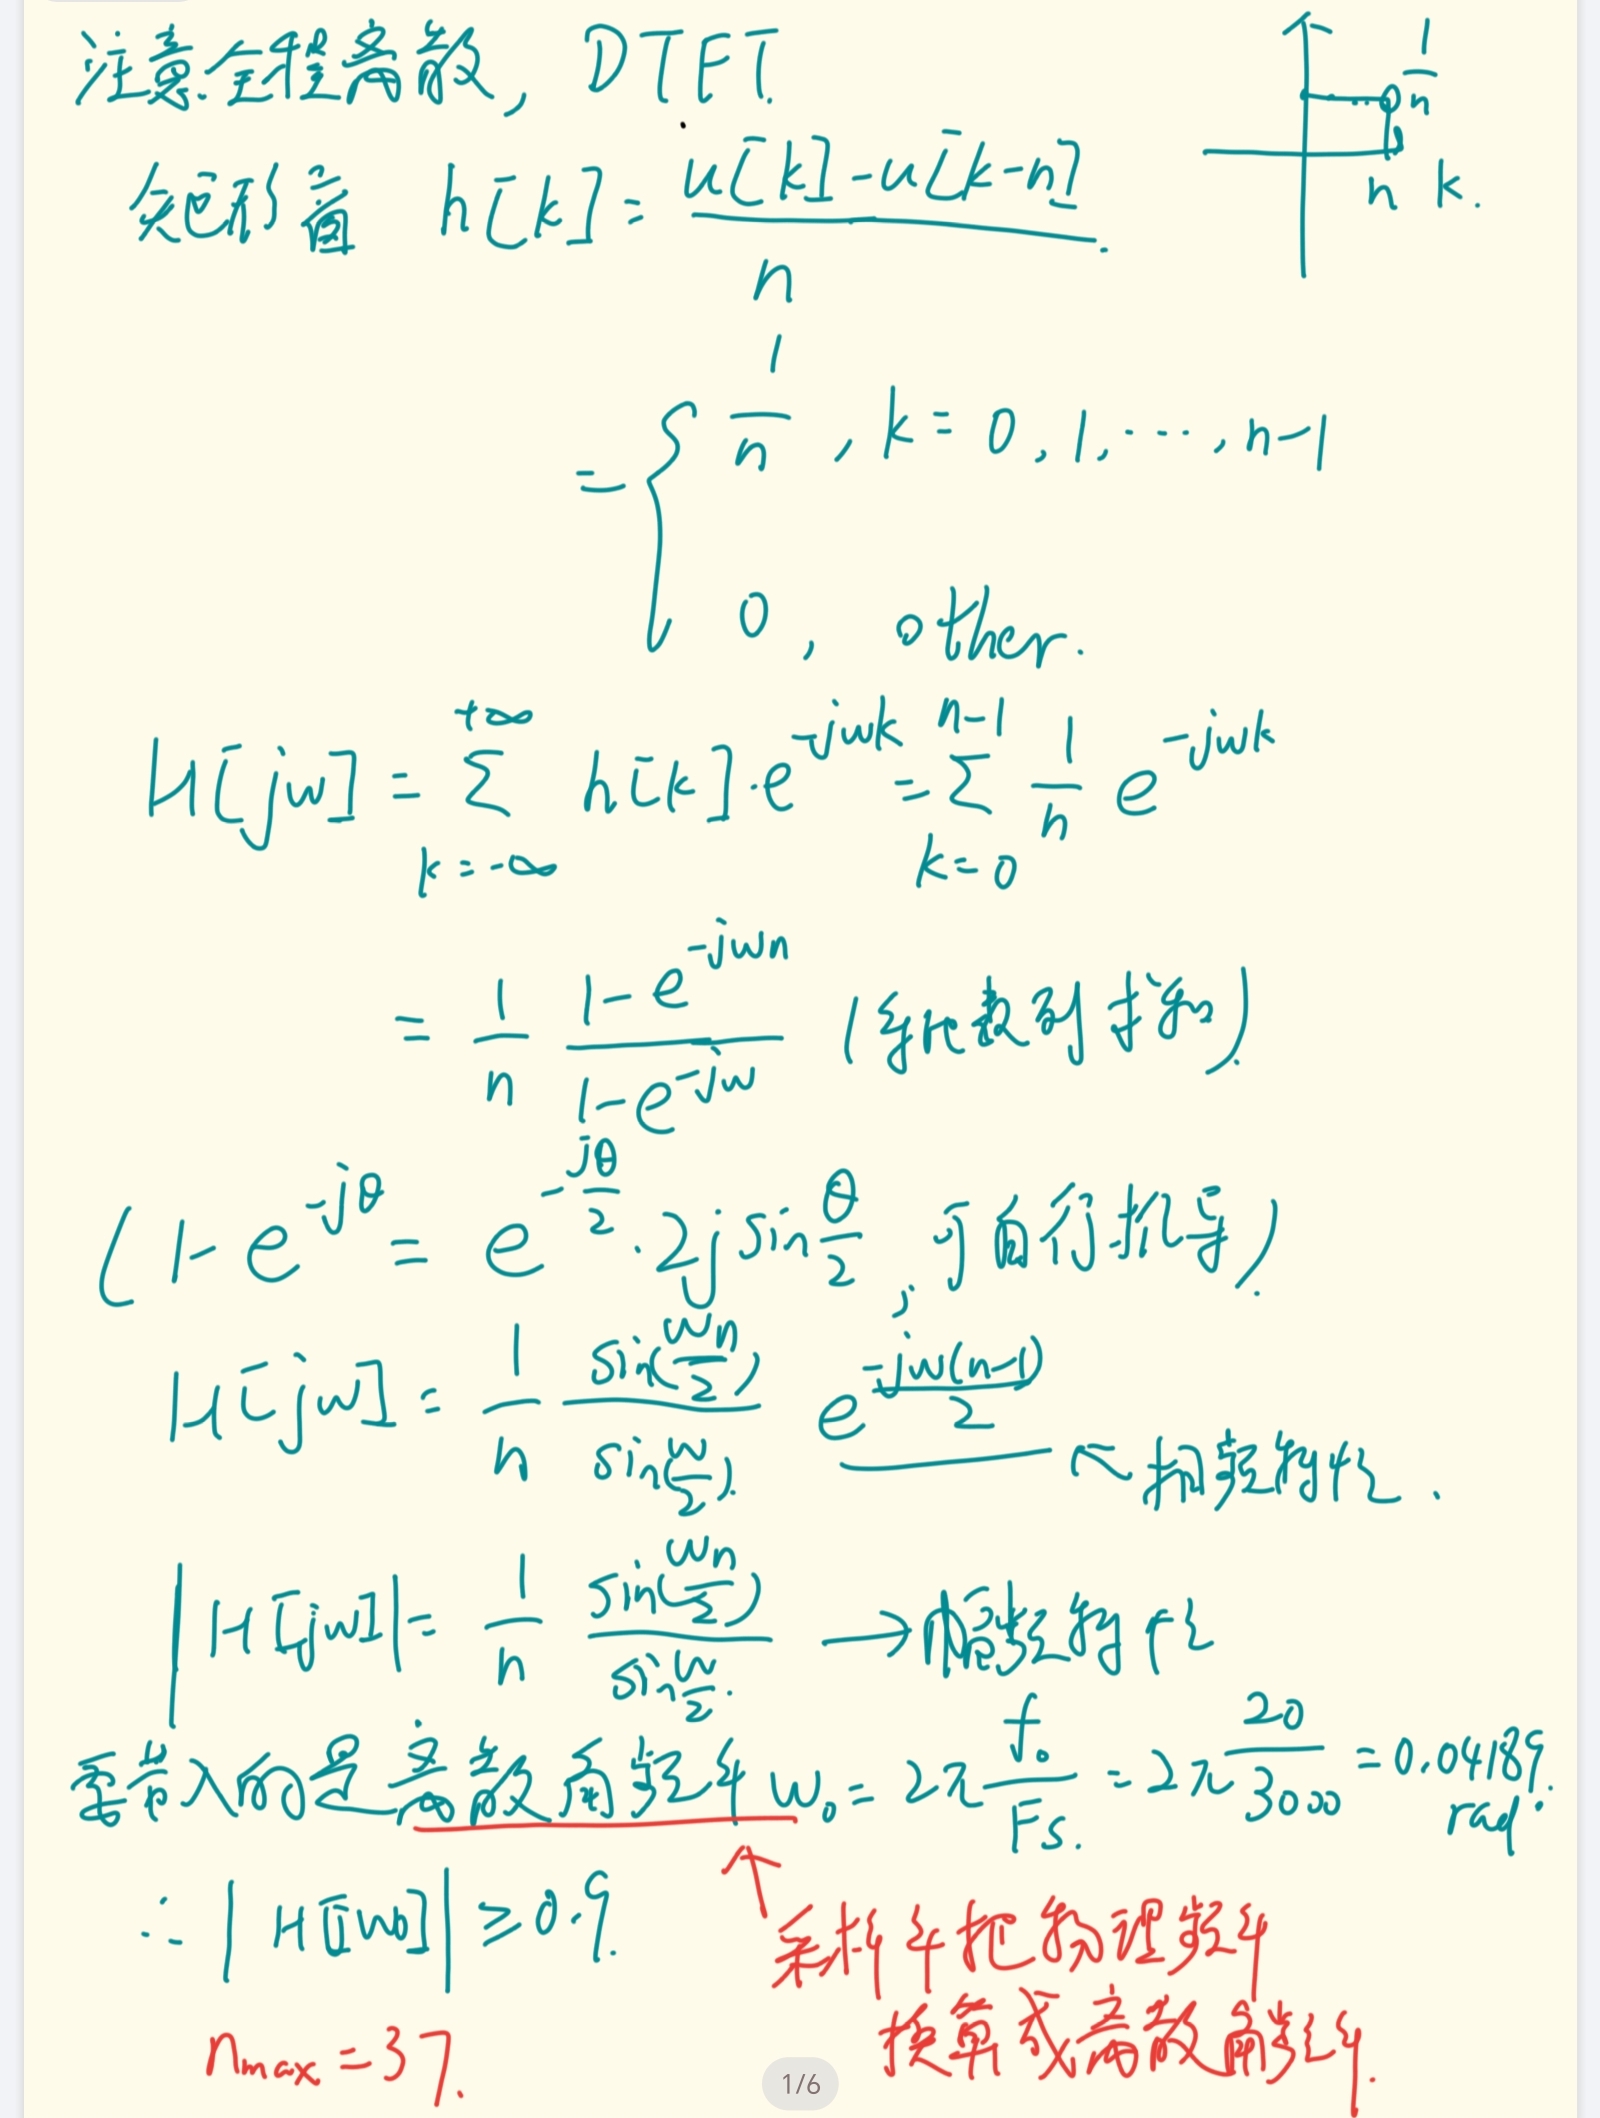 注意全程离散, DTFT.
矩形窗 h[k] = (u[k]-u[k-n])/n.
1/n
n k.
= { 1/n , k = 0, 1, ..., n-1
0, other.
H[jw] = Σ_{k=-∞}^{+∞} h[k]·e^{-jwk} = Σ_{k=0}^{n-1} 1/n e^{-jwk}
= 1/n (1-e^{-jwn})/(1-e^{-jw}) (等比数列求和).
(1-e^{-jθ} = e^{-jθ/2}·2j sin θ/2, 可自行推导).
H[jw] = 1/n sin(wn/2)/sin(w/2). e^{-jw(n-1)/2} ← 相频特性.
|H[jw]| = 1/n sin(wn/2)/sin w/2. → 幅频特性
要带入的是离散角频率 w₀ = 2π f₀/Fs. = 2π 20/3000 = 0.04189 rad.
∴ |H[jw₀]| ≥ 0.9.
采样率把物理频率
换算成离散角频率.
n_max = 37.
1/6